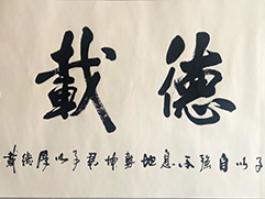 德載
子以自強不息地勢坤君子以厚德載